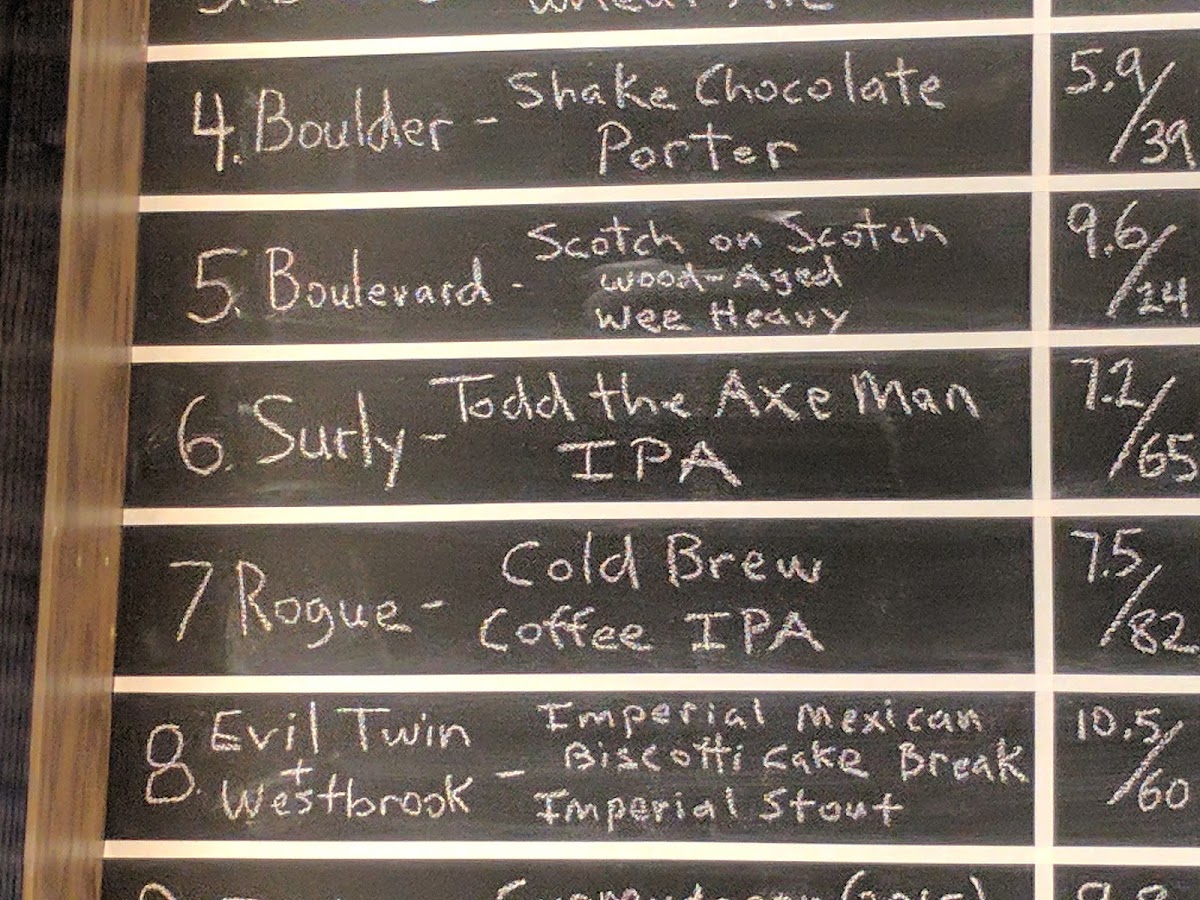 Wheat Ale
4. Boulder - Shake Chocolate
Porter
5.9/39
5. Boulevard - Scotch on Scotch
Wood-Aged
Wee Heavy
9.6/24
6. Surly - Todd the Axe Man
IPA
7.2/65
7 Rogue - Cold Brew
Coffee IPA
7.5/82
8. Evil Twin
+
Westbrook - Imperial Mexican
Biscotti Cake Break
Imperial Stout
10.5/60